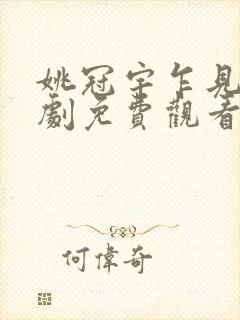 姚冠宇乍見
劇免費觀看
何偉奇